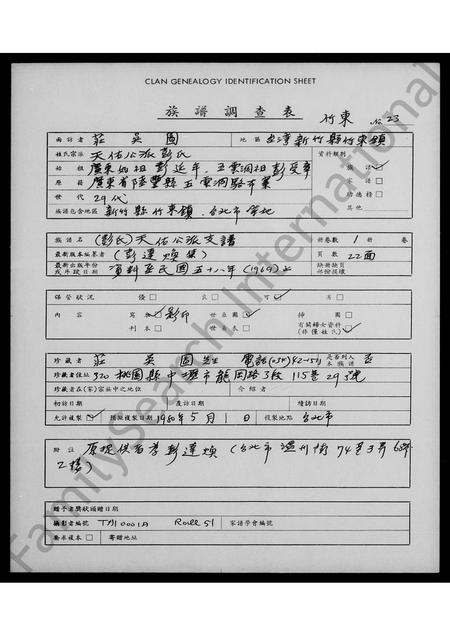 CLAN GENEALOGY IDENTIFICATION SHEET
族譜調查表 竹東 No 23
面訪者 莊吳圖 地區 台灣新竹縣竹東鎮
姓氏宗派 天佑公派彭氏 資料類別
始祖 廣東始祖彭延年 五雲洞祖彭受章 族譜 ✓
原籍 廣東省陸豐縣五雲洞 家譜 □
世代 29代 功德榜 □
族譜包含地區 新竹縣竹東鎮.台北市等地 其他
族譜名 (彭氏)天佑公派支譜 冊卷數 1 冊 卷
最新版本編纂者 (彭達煥集) 頁數 22面
最新出版年份或手段日期 資料至民國五十八年(1969)止 缺冊缺頁部份損壞
保管狀況 優□ 良□ 可✓ 差□
內容 寫 影印 世系圖 ✓ 排圖 □
刊本 □ 世系表 □ 有關婦女資料 (非僅姓氏) ✓
珍藏者 莊吳圖先生 電話(034)42-1531 是否列入本族譜 否
珍藏者住址 320 桃園縣中壢市龍岡路3段115巷29弄號
珍藏者在(家)宗族中之地位 介紹者
初訪日期 覆訪日期 續訪日期
允許複製 ✓ 攝製複製日期 1980年5月1日 複製地點 台北市
附註 原提供者彭達煥(台北市溫州街74巷3弄
2樓)
贈予者獎狀頒贈日期
攝影者編號 TA10001A Roll 51 家譜學會編號
要求複本 □ 寄贈地址
FamilySearch International